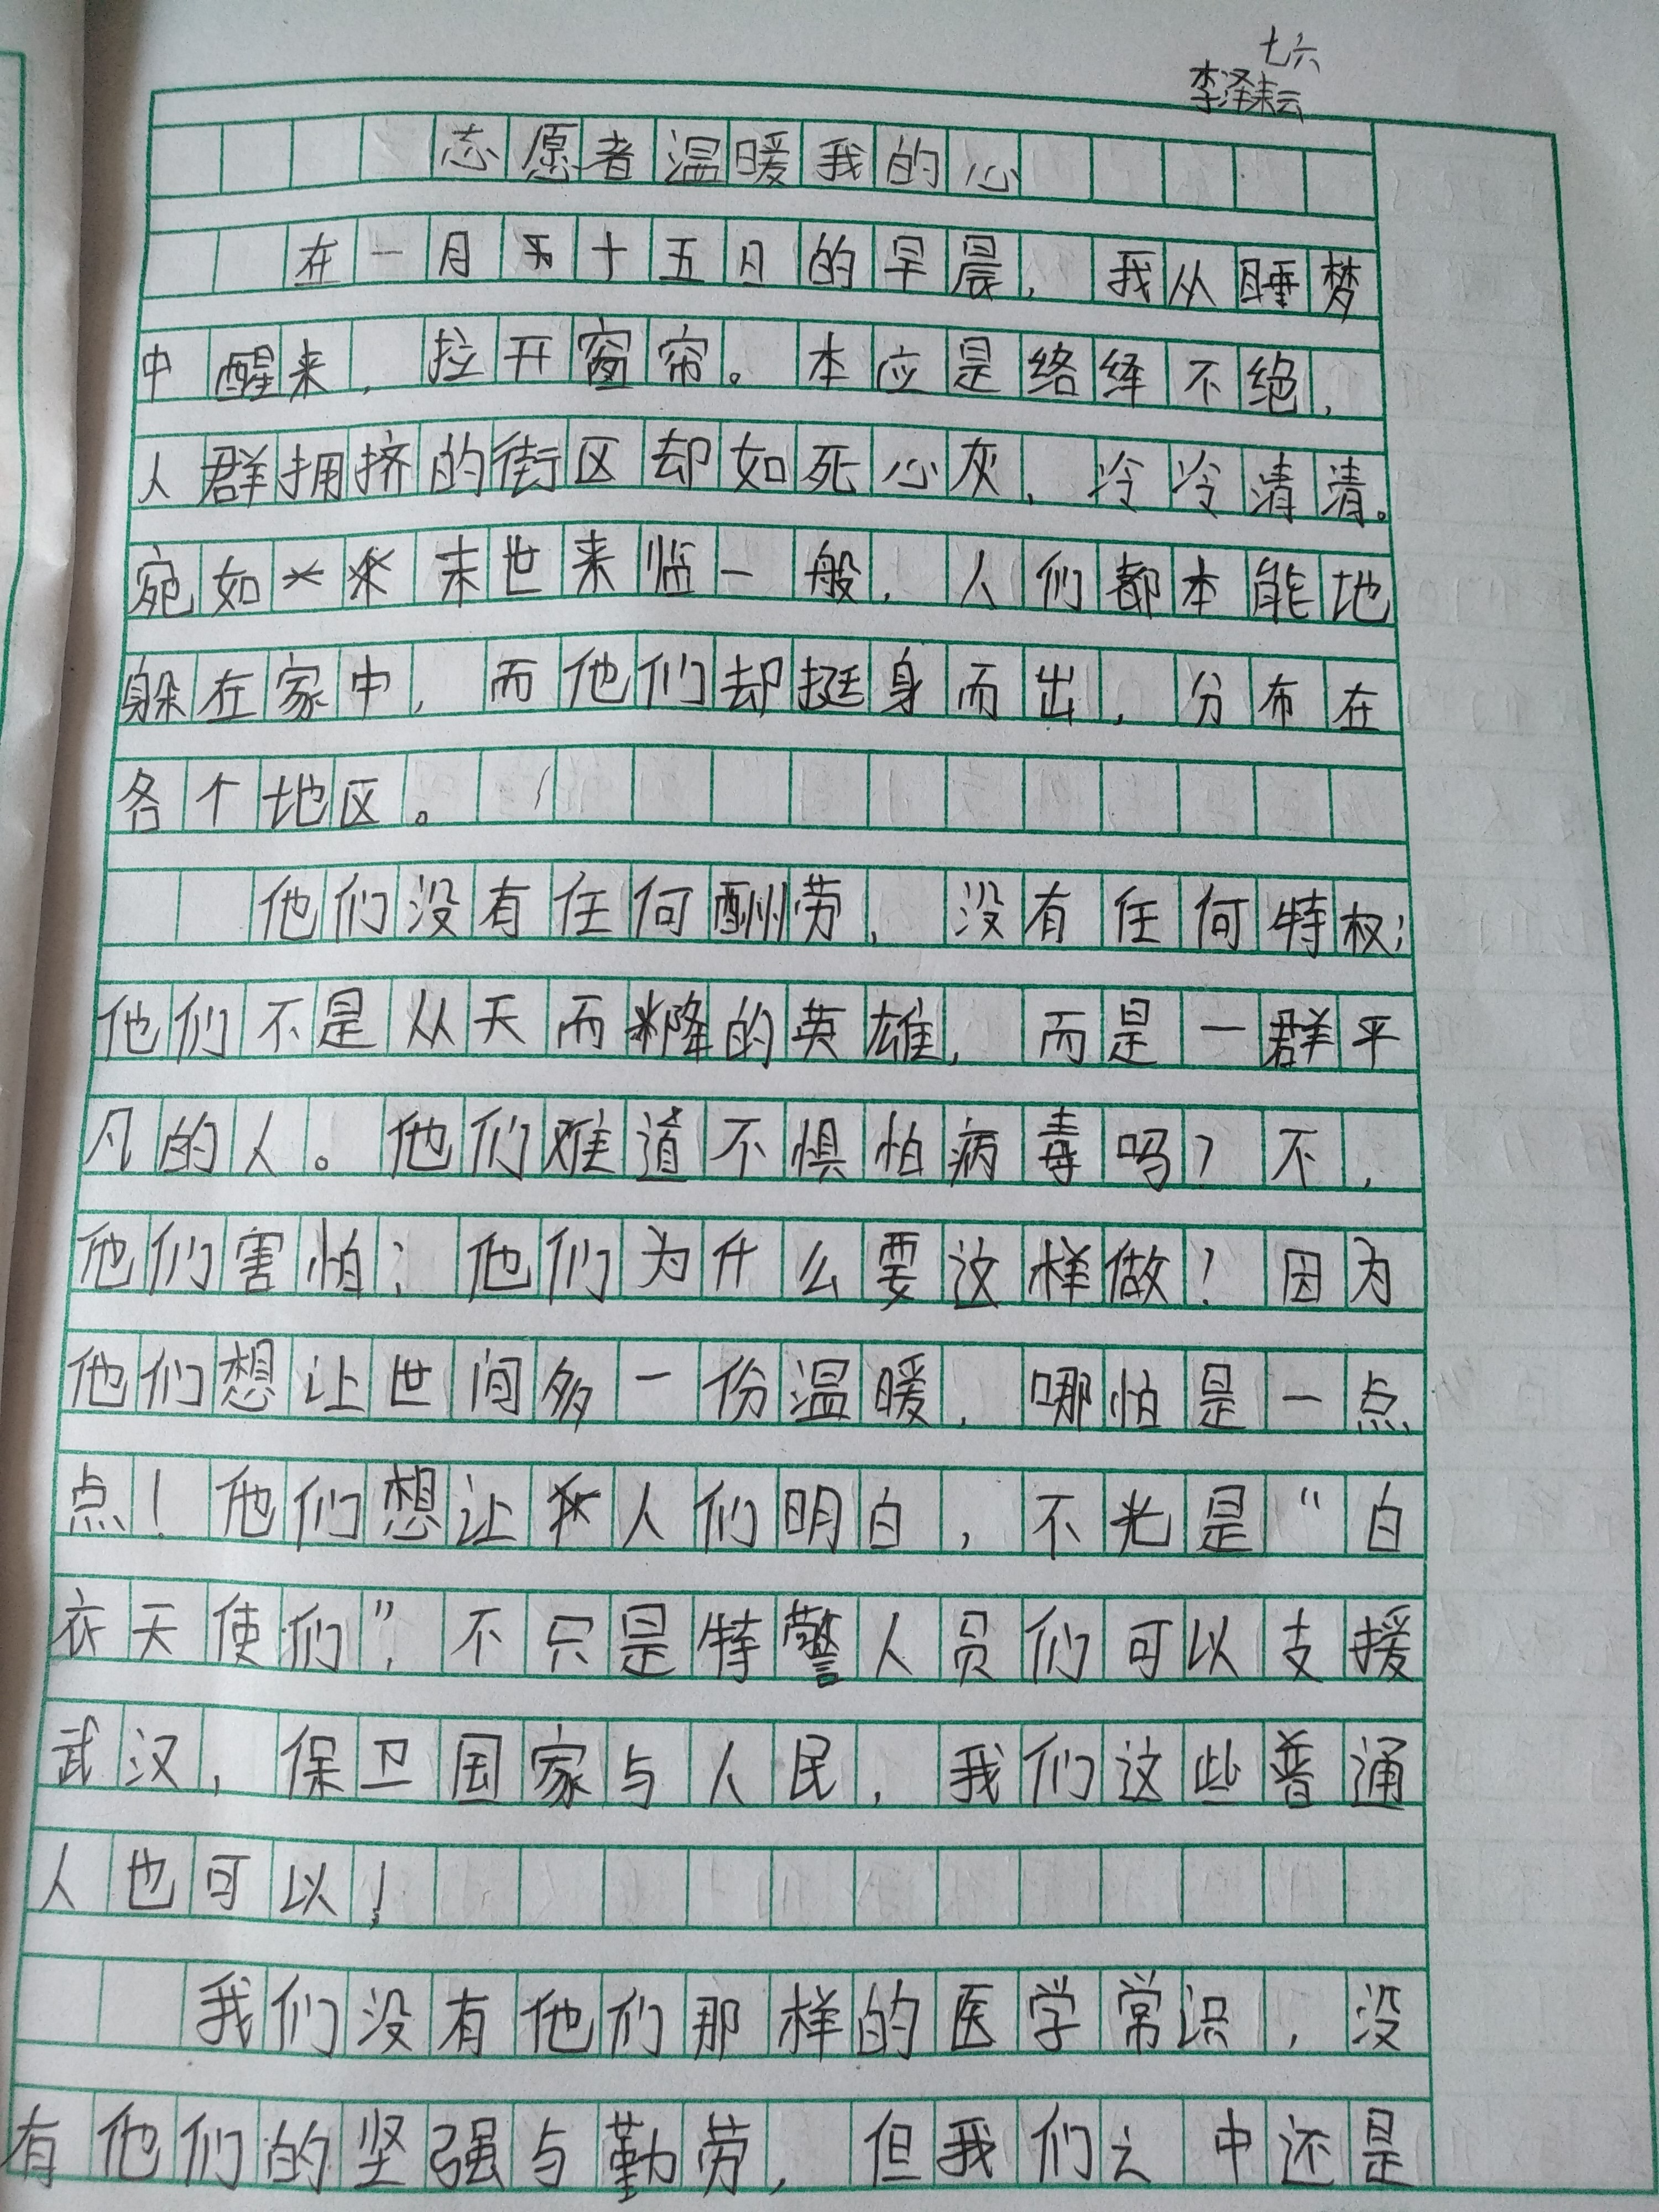 七六
李泽耘
志愿者温暖我的心
在一月十五日的早晨，我从睡梦
中醒来，拉开窗帘。本应是络绎不绝，
人群拥挤的街区却如死心灰，冷冷清清。
宛如末世来临一般，人们都本能地
躲在家中，而他们却挺身而出，分布在
各个地区。
他们没有任何酬劳，没有任何特权；
他们不是从天而降的英雄，而是一群平
凡的人。他们难道不惧怕病毒吗？不，
他们害怕；他们为什么要这样做！因为
他们想让世间多一份温暖，哪怕是一点
点！他们想让人们明白，不光是“白
衣天使们”，不只是特警人员们可以支援
武汉，保卫国家与人民，我们这些普通
人也可以！
我们没有他们那样的医学常识，没
有他们的坚强与勤劳，但我们之中还是